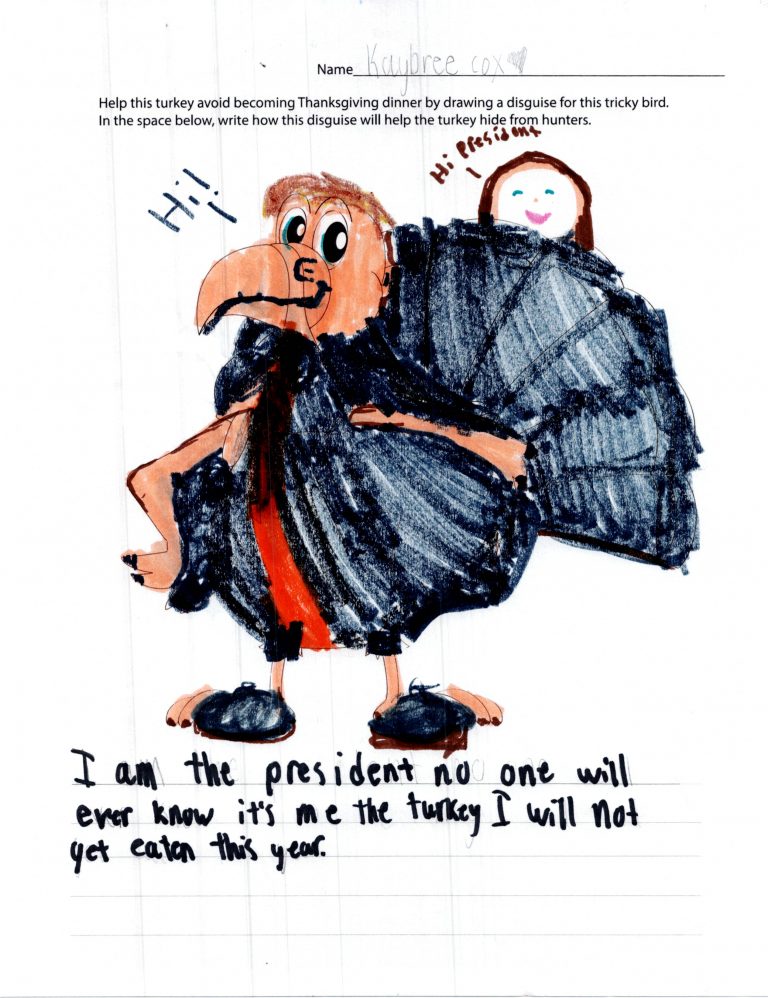 Name Kaybree cox
Help this turkey avoid becoming Thanksgiving dinner by drawing a disguise for this tricky bird.
In the space below, write how this disguise will help the turkey hide from hunters.
Hi president
Hi!!
I am the president no one will
ever know it's me the turkey I will not
get eaten this year.